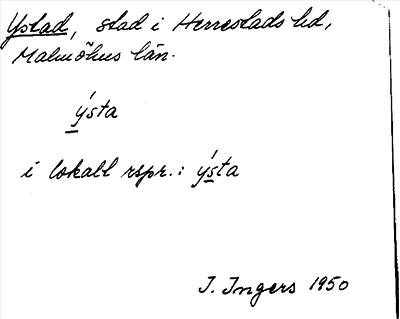 Ystad, stad i Herrestads hd,
Malmöhus län.
ýsta
i lokall rspr.: ýsta
I. Ingers 1950